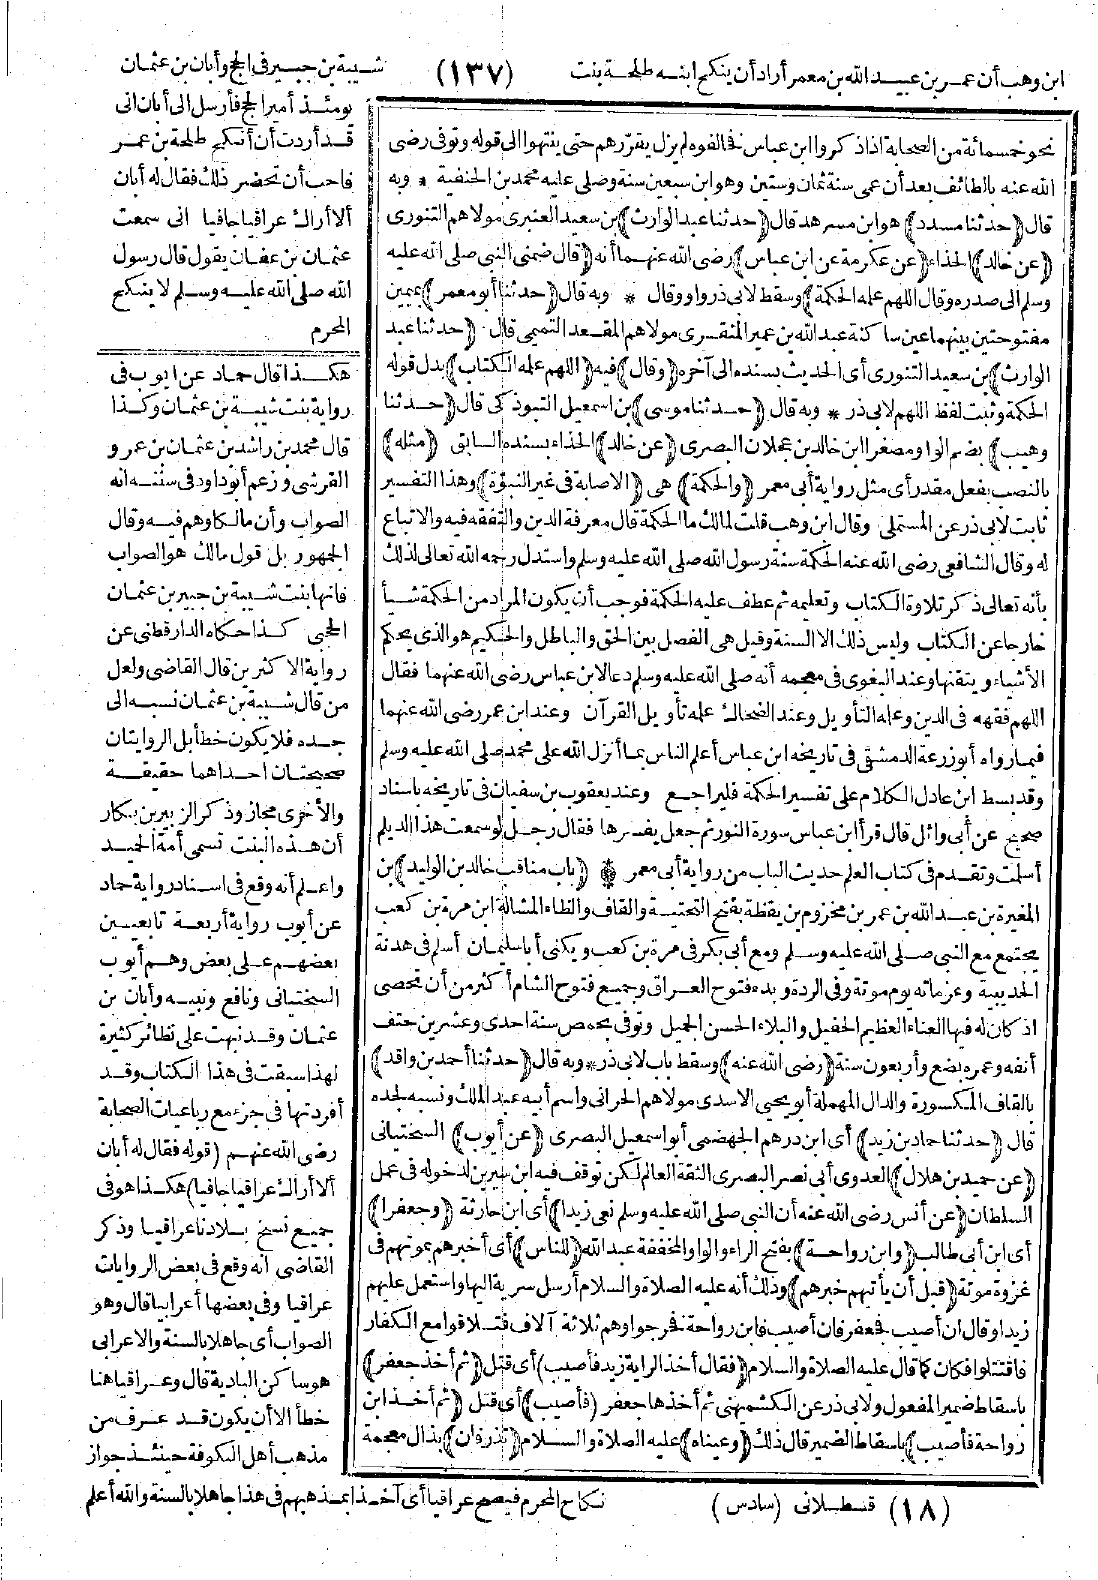 ابن وهب أن عمر بن عبيد الله بن معمر أراد أن ينكح ابنه طلحة بنت
(١٣٧)
شيبة بن جبير في الحج وأبان بن عثمان
نحو خمسمائة من الصحابة اذا ذكروا ابن عباس فخالفوه لم يزل يقررهم حتى ينتهوا الى قوله وتوفى رضى
الله عنه بالطائف بعد أن عمى سنة ثمان وستين وهو ابن سبعين سنة وصلى عليه محمد بن الحنفية * وبه
قال (حدثنا مسدد) هو ابن مسرهد قال (حدثنا عبد الوارث) بن سعيد العنبرى مولاهم التنورى
(عن خالد) الحذاء (عن عكرمة عن ابن عباس) رضى الله عنهما أنه (قال ضمنى النبى صلى الله عليه
وسلم الى صدره وقال اللهم علمه الحكمة) وسقط لابى ذر واو وقال * وبه قال (حدثنا أبو معمر) بميمين
مفتوحتين بينهما عين ساكنة عبد الله بن عمير المنقرى مولاهم المقعد التميمى قال (حدثنا عبد
الوارث) بن سعيد التنورى أى الحديث بسنده الى آخره (وقال) فيه (اللهم علمه الكتاب) بدل قوله
الحكمة وثبت لفظ اللهم لابى ذر * وبه قال (حدثنا موسى) بن اسمعيل التبوذكى قال (حدثنا
وهيب) بضم الواو مصغرا ابن خالد بن عجلان البصرى (عن خالد) الحذاء بسنده السابق (مثله)
بالنصب بفعل مقدر أى مثل رواية أبى معمر (والحكمة) هى (الاصابة فى غير النبوة) وهذا التفسير
ثابت لابى ذر عن المستملى وقال ابن وهب قلت لمالك ما الحكمة قال معرفة الدين والتفقه فيه والاتباع
له وقال الشافعى رضى الله عنه الحكمة سنة رسول الله صلى الله عليه وسلم واستدل رحمه الله تعالى لذلك
بأنه تعالى ذكر تلاوة الكتاب وتعليمه ثم عطف عليه الحكمة فوجب أن يكون المراد من الحكمة شيأ
خارجا عن الكتاب وليس ذلك الا السنة وقيل هى الفصل بين الحق والباطل والحكيم هو الذى يحكم
الأشياء ويتقنها وعند البغوى فى معجمه أنه صلى الله عليه وسلم دعا لابن عباس رضى الله عنهما فقال
اللهم فقهه فى الدين وعلمه التأويل وعند الضحاك علمه تأويل القرآن وعند ابن عمر رضى الله عنهما
فيما رواه أبو زرعة الدمشقى فى تاريخه ابن عباس أعلم الناس بما أنزل الله على محمد صلى الله عليه وسلم
وقد بسط ابن عادل الكلام على تفسير الحكمة فليراجع وعند يعقوب بن سفيان فى تاريخه باسناد
صحيح عن أبى وائل قال قرأ ابن عباس سورة النور ثم جعل يفسرها فقال رجل لو سمعت هذا الديلم
أسلمت وتقدم فى كتاب العلم حديث الباب من رواية أبى معمر * (باب مناقب خالد بن الوليد) بن
المغيرة بن عبد الله بن عمر بن مخزوم بن يقظة بفتح التحتية والقاف والظاء المشالة ابن مرة بن كعب
يجتمع مع النبى صلى الله عليه وسلم ومع أبى بكر فى مرة بن كعب ويكنى أبا سليمان أسلم فى هدنة
الحديبية وعزماته يوم موتة وفى الردة وبدء فتوح العراق وجميع فتوح الشام أكثر من أن تحصى
اذ كان له فيها العناء العظيم الحفيل والبلاء الحسن الجميل وتوفى بحمص سنة احدى وعشرين حتف
أنفه وعمره بضع وأربعون سنة (رضى الله عنه) وسقط باب لابى ذر * وبه قال (حدثنا أحمد بن واقد)
بالقاف المكسورة والدال المهملة أبو يحيى الاسدى مولاهم الحرانى واسم أبيه عبد الملك ونسبه لجده
قال (حدثنا حماد بن زيد) أى ابن درهم الجهضمى أبو اسمعيل البصرى (عن أيوب) السختيانى
(عن حميد بن هلال) العدوى أبى نصر البصرى الثقة العالم لكن توقف فيه ابن سيرين لدخوله فى عمل
السلطان (عن أنس رضى الله عنه أن النبى صلى الله عليه وسلم نعى زيدا) أى ابن حارثة (وجعفرا)
أى ابن أبى طالب (وابن رواحة) بفتح الراء والواو المخففة عبد الله (للناس) أى أخبرهم بموتهم فى
غزوة موتة (قبل أن يأتيهم خبرهم) وذلك أنه عليه الصلاة والسلام أرسل سرية اليها واستعمل عليهم
زيدا وقال ان أصيب فجعفر فان أصيب فابن رواحة فخرجوا وهم ثلاثة آلاف فتلاقوا مع الكفار
فاقتتلوا فكان كما قال عليه الصلاة والسلام (فقال أخذ الراية زيد فأصيب) أى قتل (ثم أخذ جعفر)
باسقاط ضمير المفعول ولابى ذر عن الكشميهنى ثم أخذها جعفر (فأصيب) أى قتل (ثم أخذ ابن
رواحة فأصيب) باسقاط الضمير قال ذلك (وعيناه) عليه الصلاة والسلام (تذرفان) بذال معجمة
يومئذ أمير الحج فأرسل الى أبان انى
قد أردت أن أنكح طلحة بن عمر
فاحب أن تحضر ذلك فقال له أبان
ألا أراك عراقيا جافيا انى سمعت
عثمان بن عفان يقول قال رسول
الله صلى الله عليه وسلم لا ينكح
المحرم
هكذا قال حماد عن ايوب فى
رواية بنت شيبة بن عثمان وكذا
قال محمد بن راشد بن عثمان بن عمرو
القرشى وزعم أبو داود فى سننه انه
الصواب وأن مالكا وهم فيه وقال
الجمهور بل قول مالك هو الصواب
فانها بنت شيبة بن جبير بن عثمان
الحجبى كذا حكاه الدارقطنى عن
رواية الاكثرين قال القاضى ولعل
من قال شيبة بن عثمان نسبه الى
جده فلا يكون خطأ بل الروايتان
صحيحتان احداهما حقيقة
والأخرى مجاز وذكر الزبير بن بكار
أن هذه البنت تسمى أمة الحميد
واعلم أنه وقع فى اسناد رواية حماد
عن أيوب رواية أربعة تابعيين
بعضهم على بعض وهم أيوب
السختيانى ونافع ونبيه وأبان بن
عثمان وقد نبهت على نظائر كثيرة
لهذا سبقت فى هذا الكتاب وقد
أفردتها فى جزء مع رباعيات الصحابة
رضى الله عنهم (قوله فقال له أبان
ألا أراك عراقيا جافيا) هكذا هو فى
جميع نسخ بلادنا عراقيا وذكر
القاضى أنه وقع فى بعض الروايات
عراقيا وفى بعضها أعرابيا قال وهو
الصواب أى جاهلا بالسنة والاعرابى
هو ساكن البادية قال وعراقيا هنا
خطأ الا أن يكون قد عرف من
مذهب أهل الكوفة حينئذ جواز
نكاح المحرم فيصح عراقيا أى آخذا بمذهبهم فى هذا جاهلا بالسنة والله أعلم
(١٨) قسطلانى (سادس)